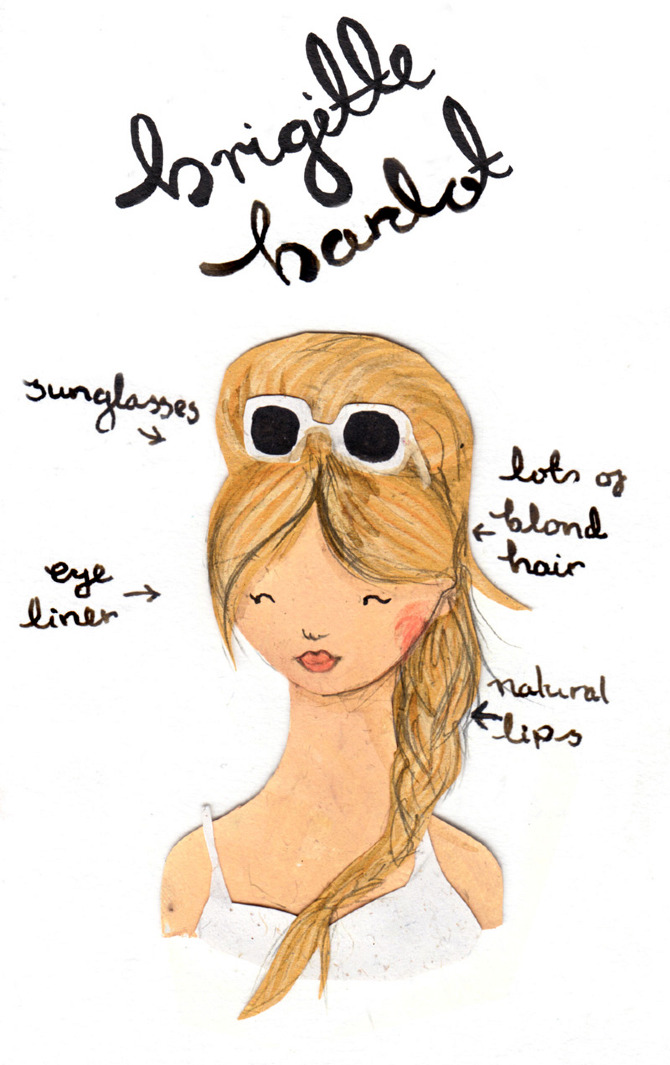 brigitte
bardot
sunglasses
lots of
blond
hair
eye
liner
natural
lips